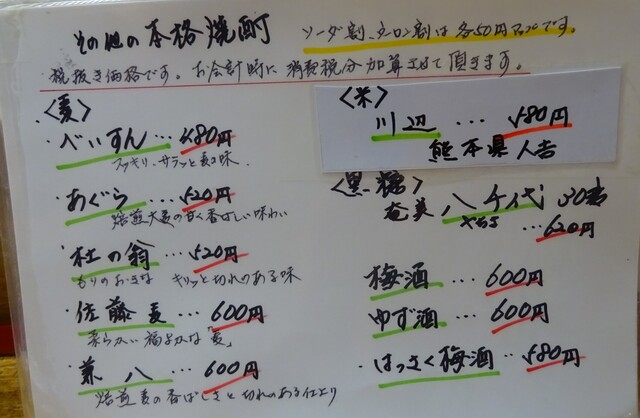 その他の本格焼酎
ソーダ割、ウーロン割は各50円アップです。
・税抜き価格です。お会計時に消費税分加算させて頂きます。
〈麦〉
・べいすん…480円
スッキリ、サラッと麦の味
・あぐら…520円
焙煎大麦の甘く香ばしい味わい
・杜の翁…520円
もりのおきな キリッと切れのある味
・佐藤麦…600円
柔らかい福よかな「麦」
・兼八…600円
焙煎麦の香ばしさと切れのある仕上り
〈米〉
川辺…580円
熊本県人吉
〈黒糖〉
奄美 八千代 30度
やちよ …620円
梅酒…600円
ゆず酒…600円
はっさく梅酒…580円